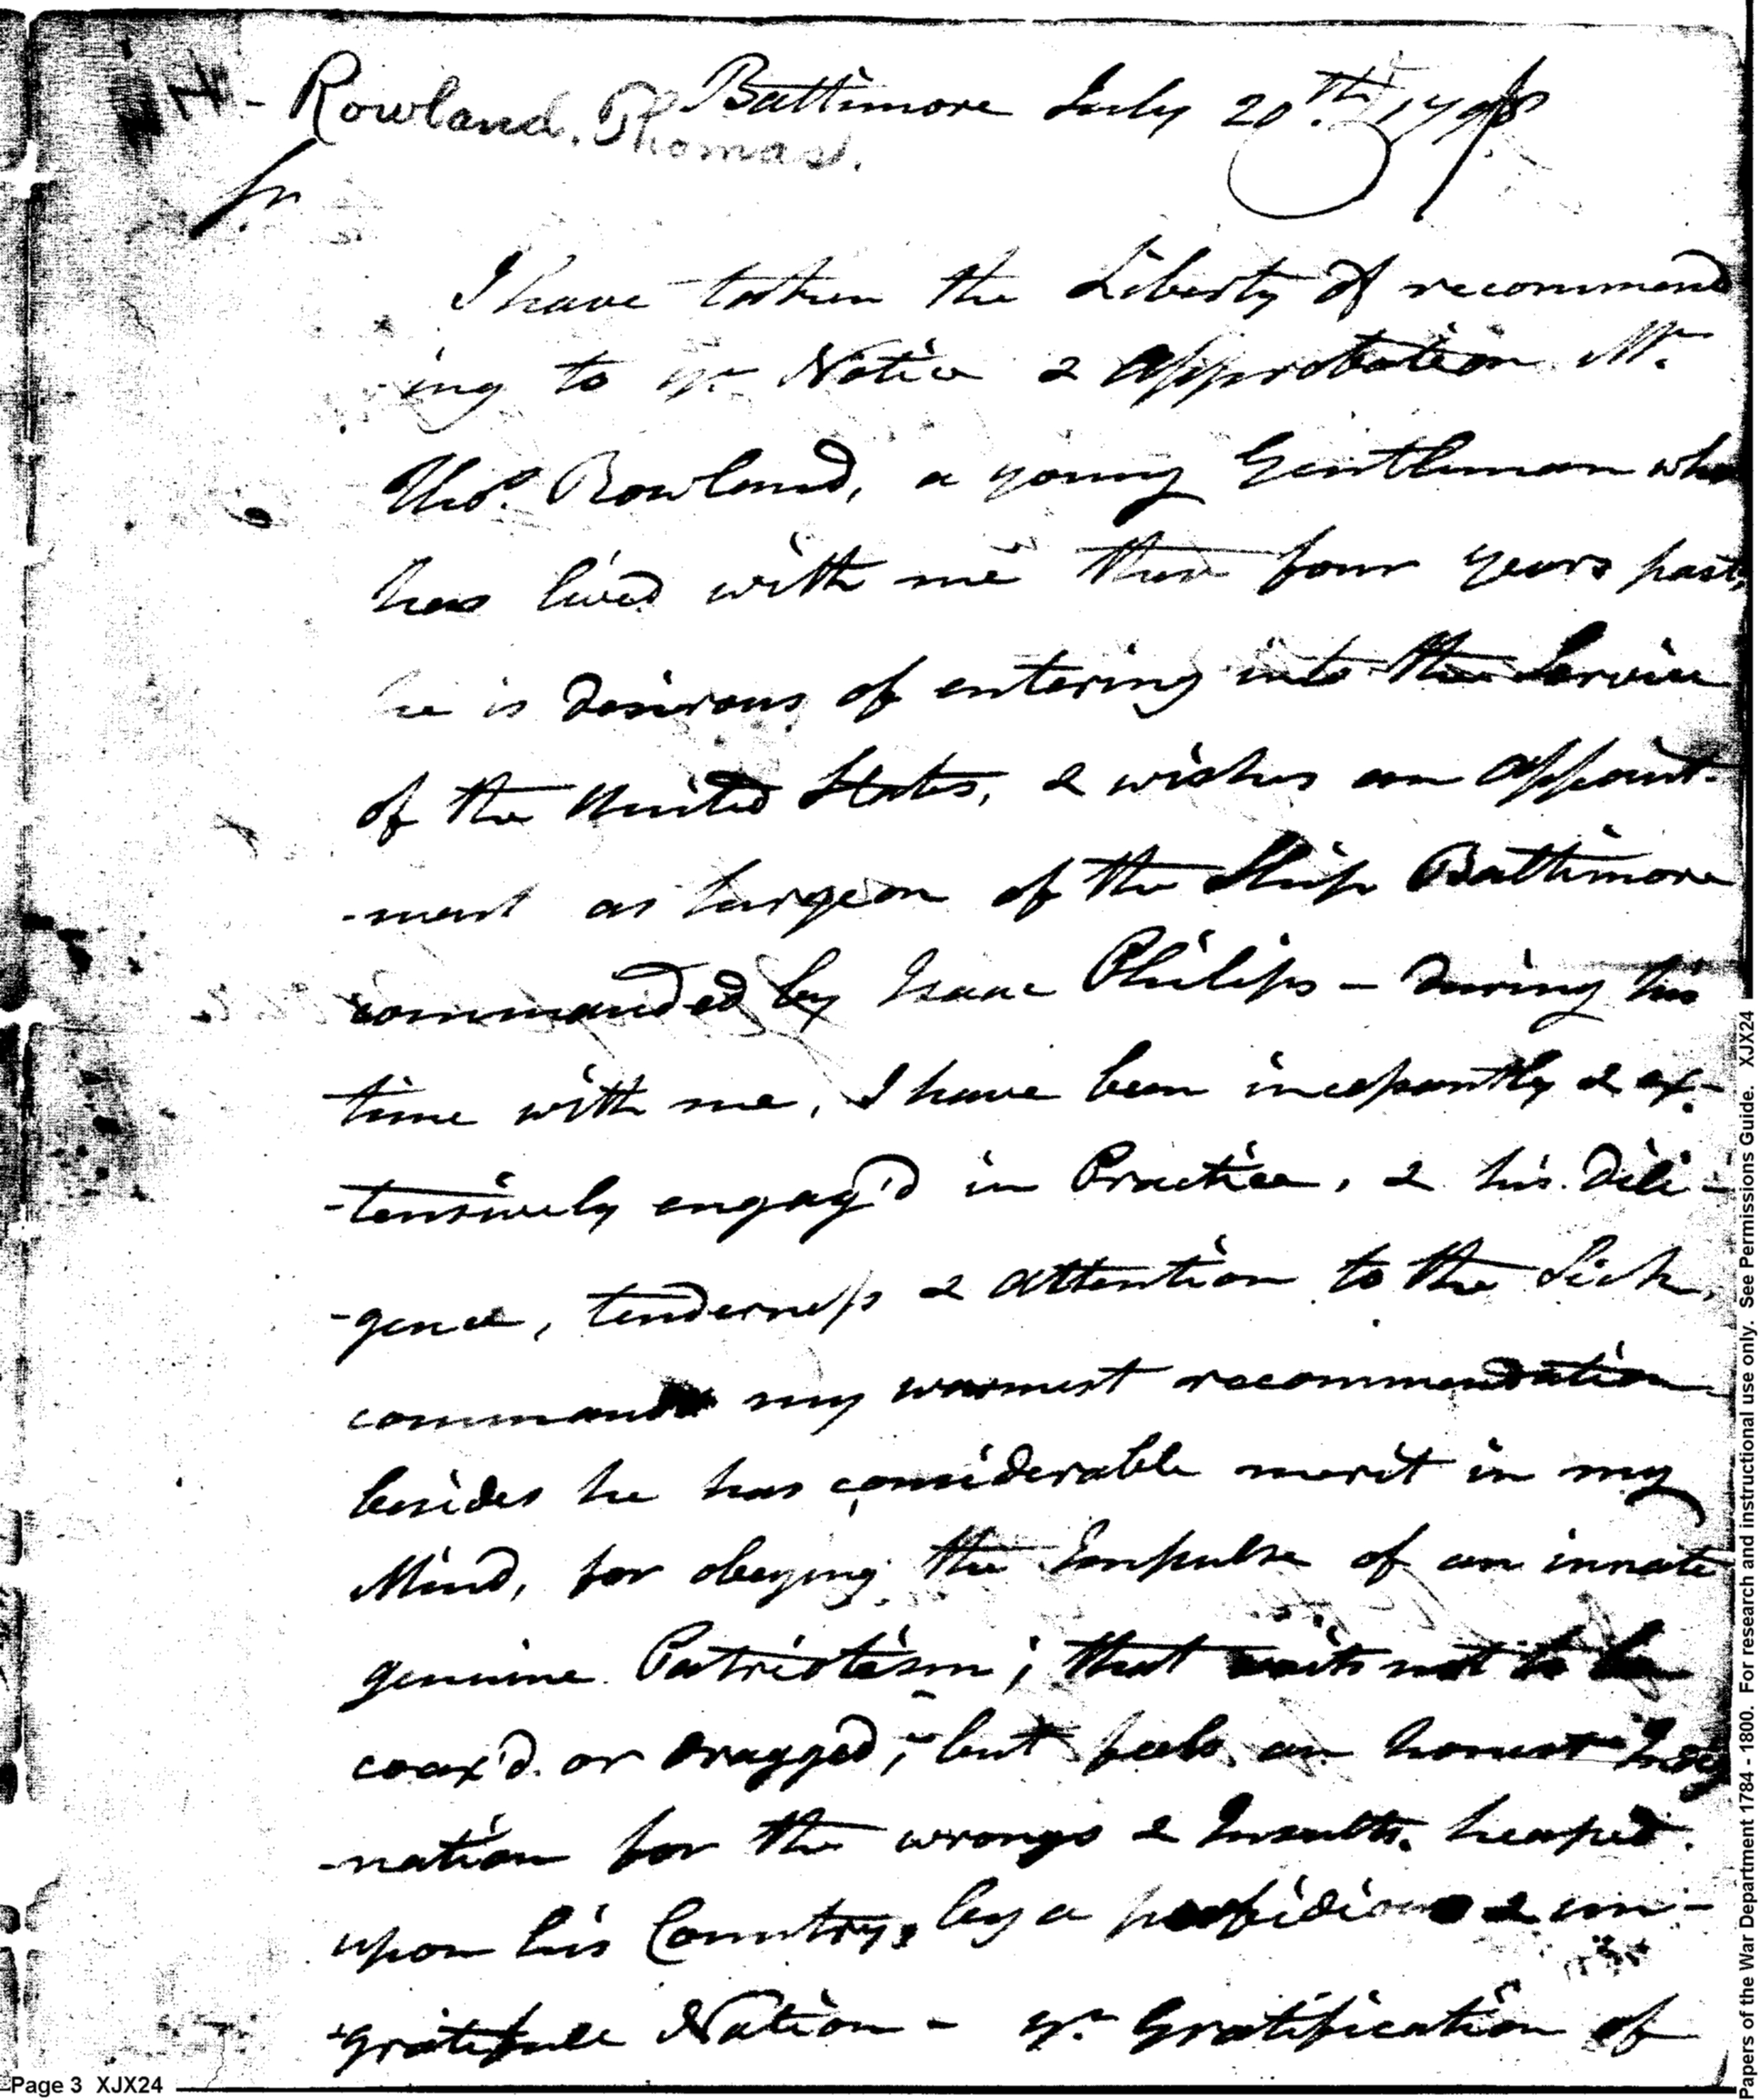 - Rowland, Thomas.
Baltimore July 20th. 1798
Sr
I have taken the Liberty of recommend
ing to yr. Notice & approbation Mr.
Thos. Rowland, a young Gentleman who
has lived with me these four years past,
he is desirous of entering into the Service
of the United States, & wishes an appoint-
-ment as Surgeon of the Ship Baltimore
commanded by Isaac Philips - during his
time with me, I have been incessantly & ex-
-tensively engag'd in Practice, & his dili-
-gence, tenderness & attention to the Sick,
commands my warmest recommendation
besides he has considerable merit in my
Mind, for obeying the Impulse of an innate
genuine Patriotism; that waits not to be
coax'd or dragged; but feels an honest Indig
-nation for the wrongs & Insults heaped
upon his Country, by a perfidious & un-
-gratefull Nation - yr. Gratification of
Page 3 XJX24
Papers of the War Department 1784 - 1800. For research and instructional use only. See Permissions Guide. XJX24